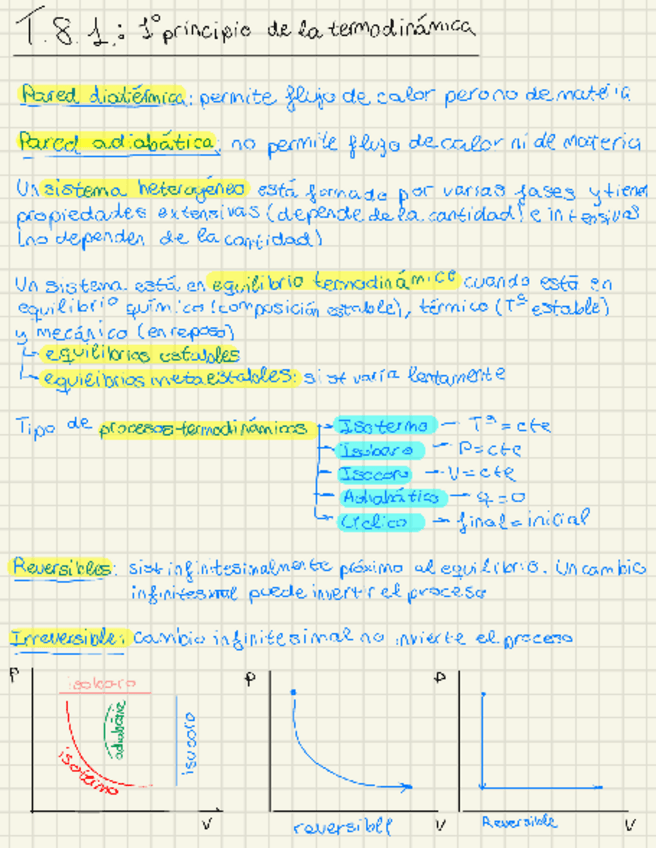 T.8.1.: 1º principio de la termodinámica
Pared diatérmica: permite flujo de calor pero no de materia
Pared adiabática: no permite flujo de calor ni de materia
Un sistema heterogéneo está formado por varias fases y tienen
propiedades extensivas (depende de la cantidad) e intensivas
(no dependen de la cantidad)
Un sistema está en equilibrio termodinámico cuando está en
equilibrio químico (composición estable), térmico (Tª estable)
y mecánico (en reposo)
equilibrios estables
equilibrios metaestables: sist varía lentamente
Tipo de procesos termodinámicos
Isotermo — Tª = cte
Isobaro — P = cte
Isocoro — V = cte
Adiabático — q = 0
Cíclico → final = inicial
Reversibles: sist infinitesimalmente próximo al equilibrio. Un cambio
infinitesimal puede invertir el proceso
Irreversible: cambio infinitesimal no invierte el proceso
P
isobaro
isotermo
isocoro
V
P
reversible
V
P
Reversible
V